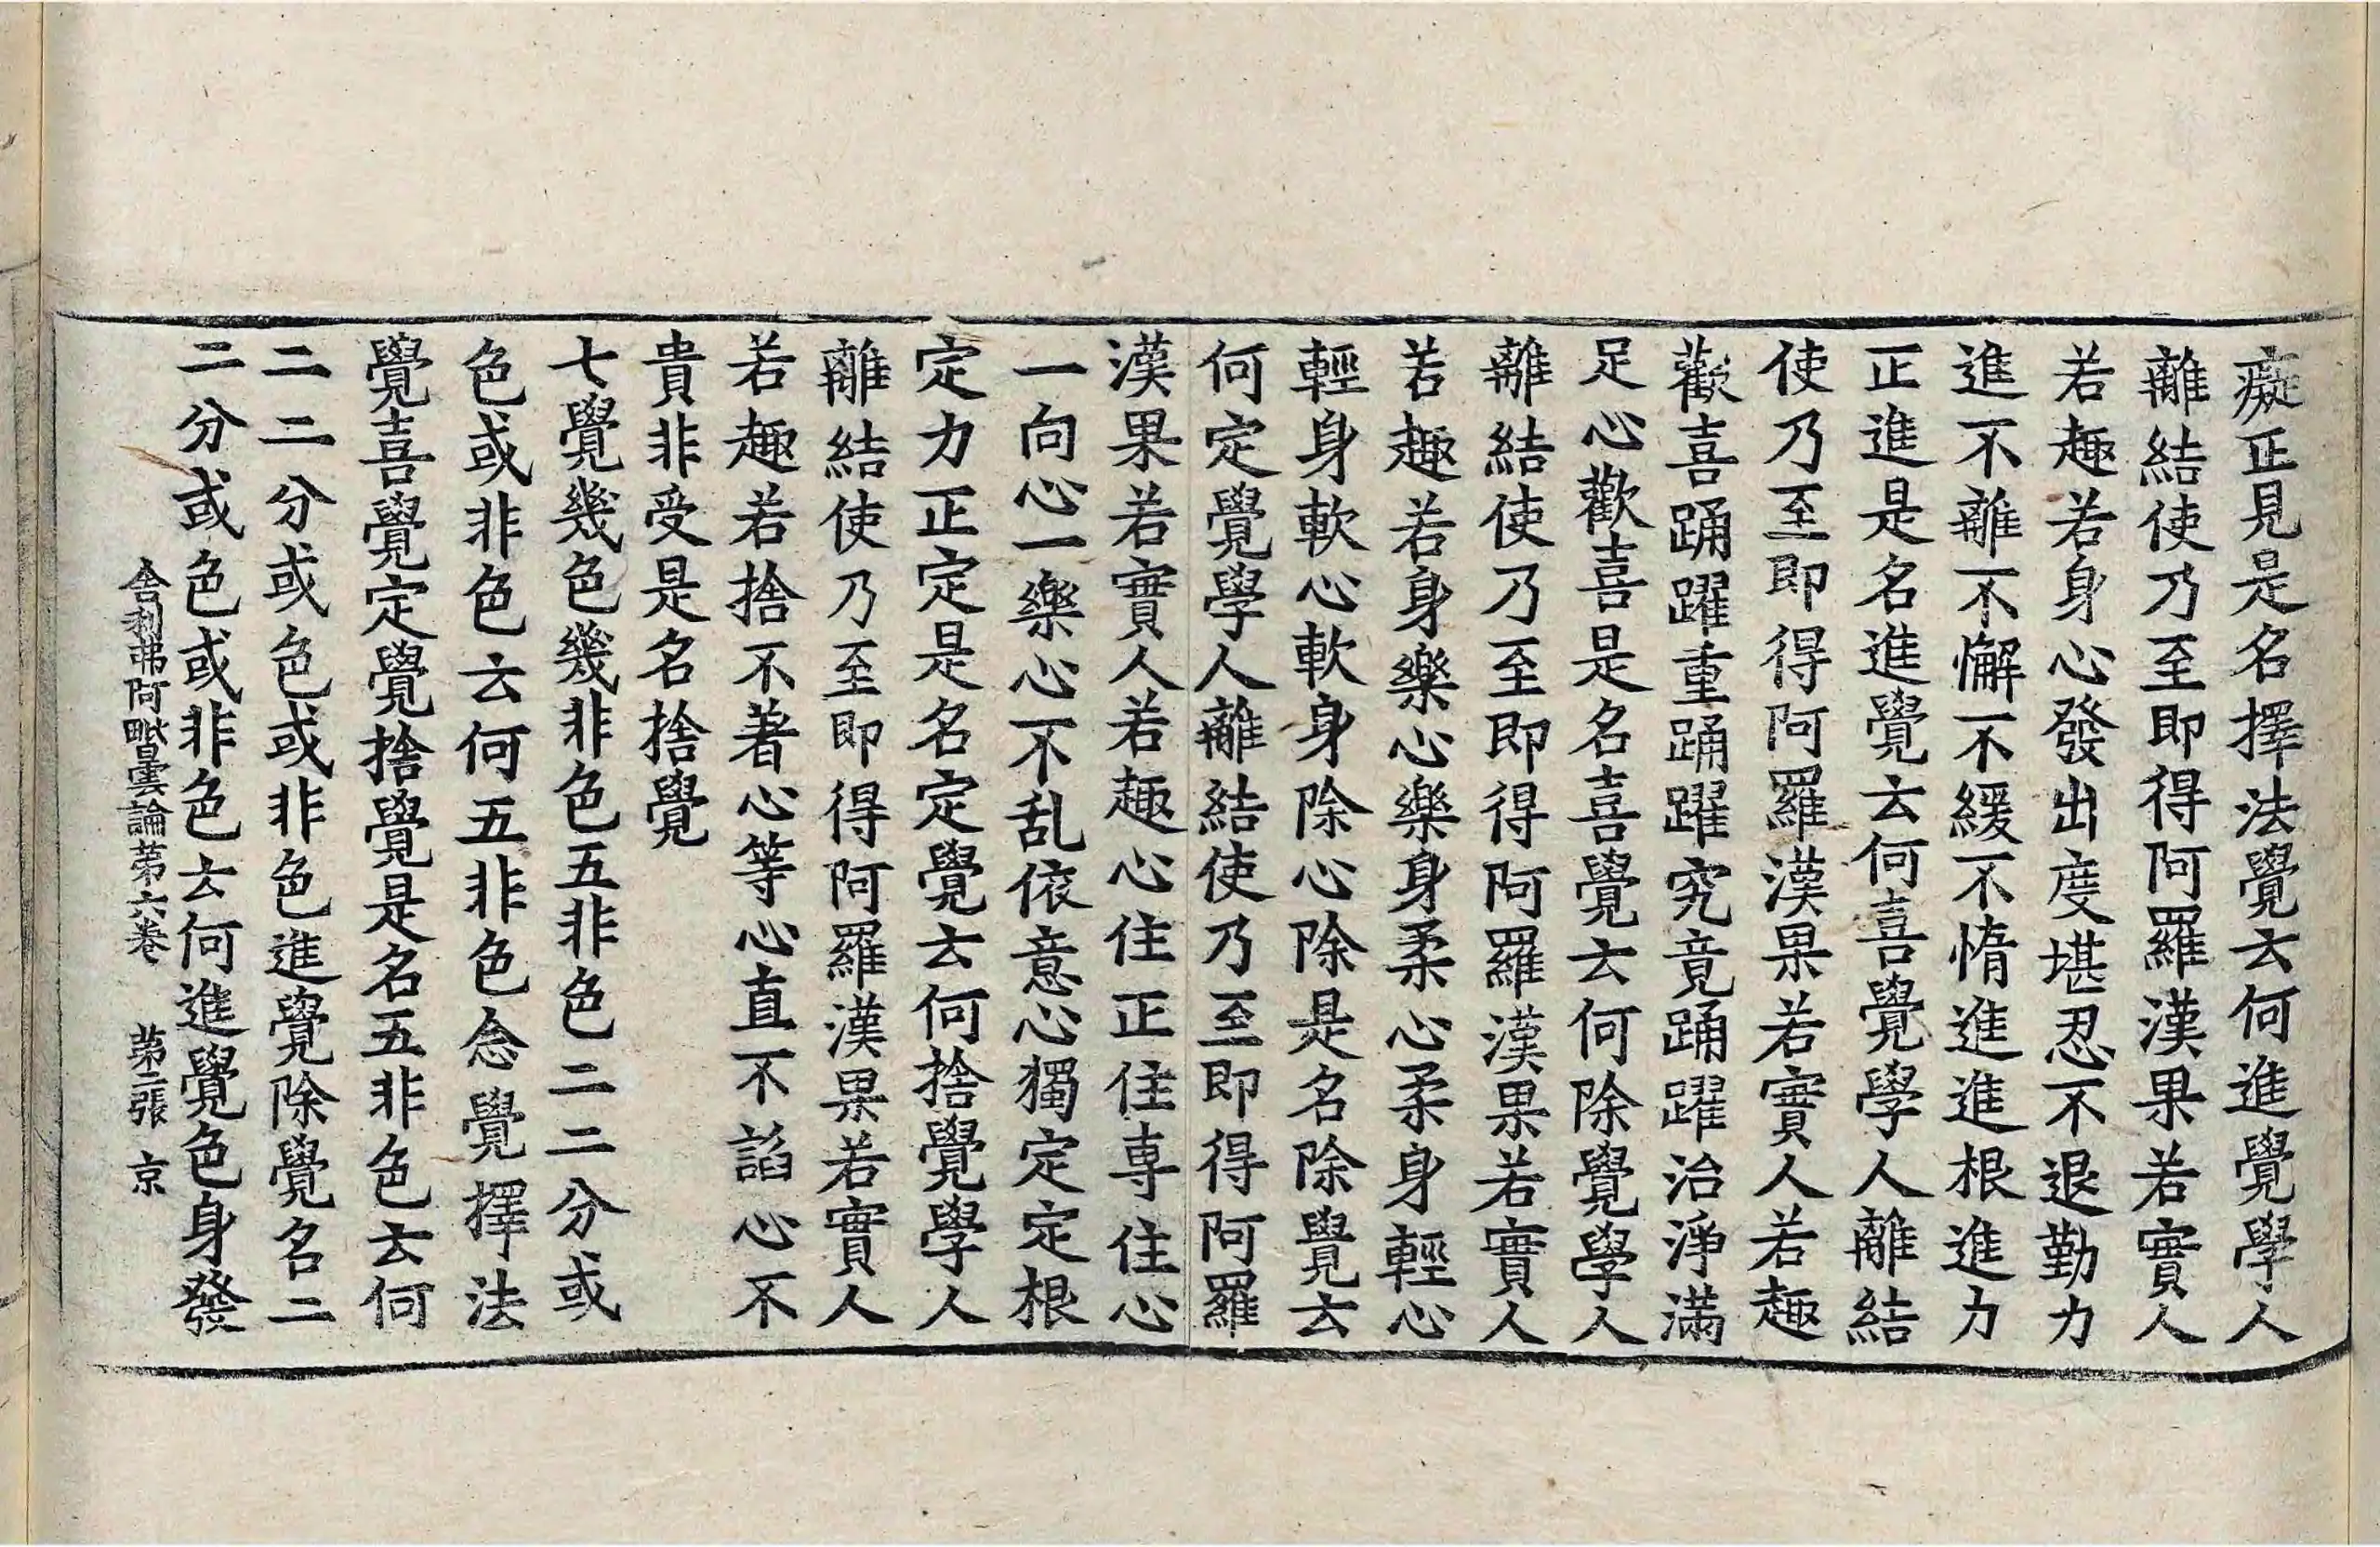 癡正見是名擇法覺云何進覺學人
離結使乃至即得阿羅漢果若實人
若趣若身心發出度堪忍不退勤力
進不離不懈不緩不惰進進根進力
正進是名進覺云何喜覺學人離結
使乃至即得阿羅漢果若實人若趣
歡喜踊躍重踊躍究竟踊躍治淨滿
足心歡喜是名喜覺云何除覺學人
離結使乃至即得阿羅漢果若實人
若趣若身樂心樂身柔心柔身輕心
輕身軟心軟身除心除是名除覺云
何定覺學人離結使乃至即得阿羅
漢果若實人若趣心住正住專住心
一向心一樂心不乱依意心獨定定根
定力正定定是名定定覺云何捨覺學人
離結使乃至即得阿羅漢果若實人
若趣若捨不著心等心直不諂心不
貴非受是名捨覺
七覺幾色幾非色五非色二二分或
色或非色云何五非色念覺擇法
覺喜覺定覺捨覺是名五非色云何
二二分或色或非色進覺除覺名二
二分或色或非色云何進覺色身發
舍利弗阿毗曇論苐六卷 苐二張 京